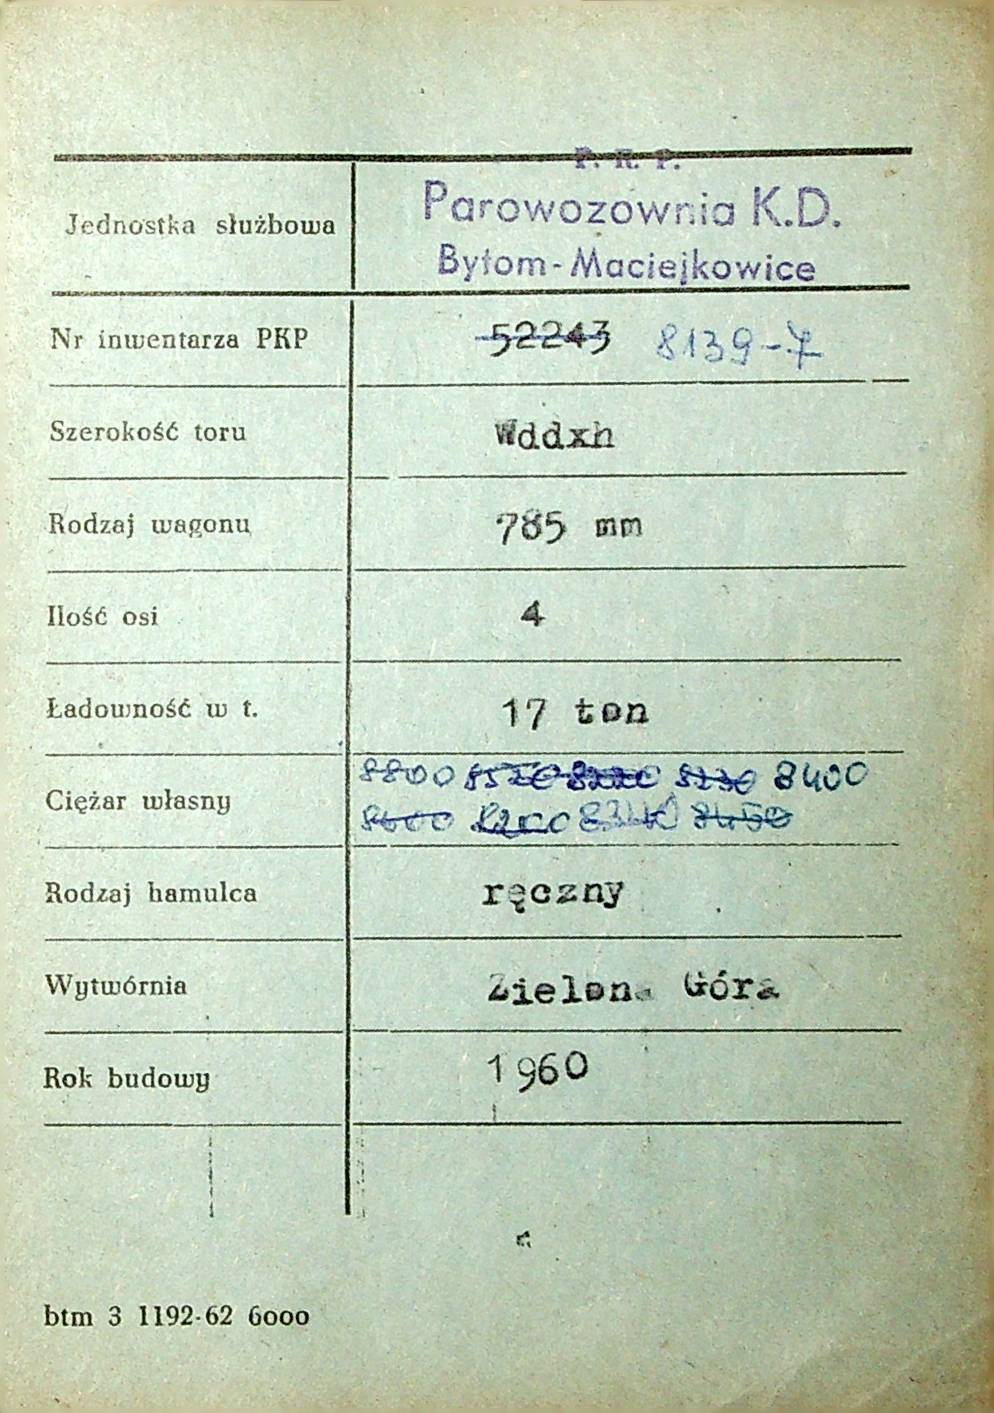 P. K. P.
Jednostka służbowa Parowozownia K.D.
Bytom-Maciejkowice
Nr inwentarza PKP 52243 8139-7
Szerokość toru Wddxh
Rodzaj wagonu 785 mm
Ilość osi 4
Ładowność w t. 17 ton
Ciężar własny 8800 8400
8450
Rodzaj hamulca ręczny
Wytwórnia Zielona Góra
Rok budowy 1960
btm 3 1192-62 6000